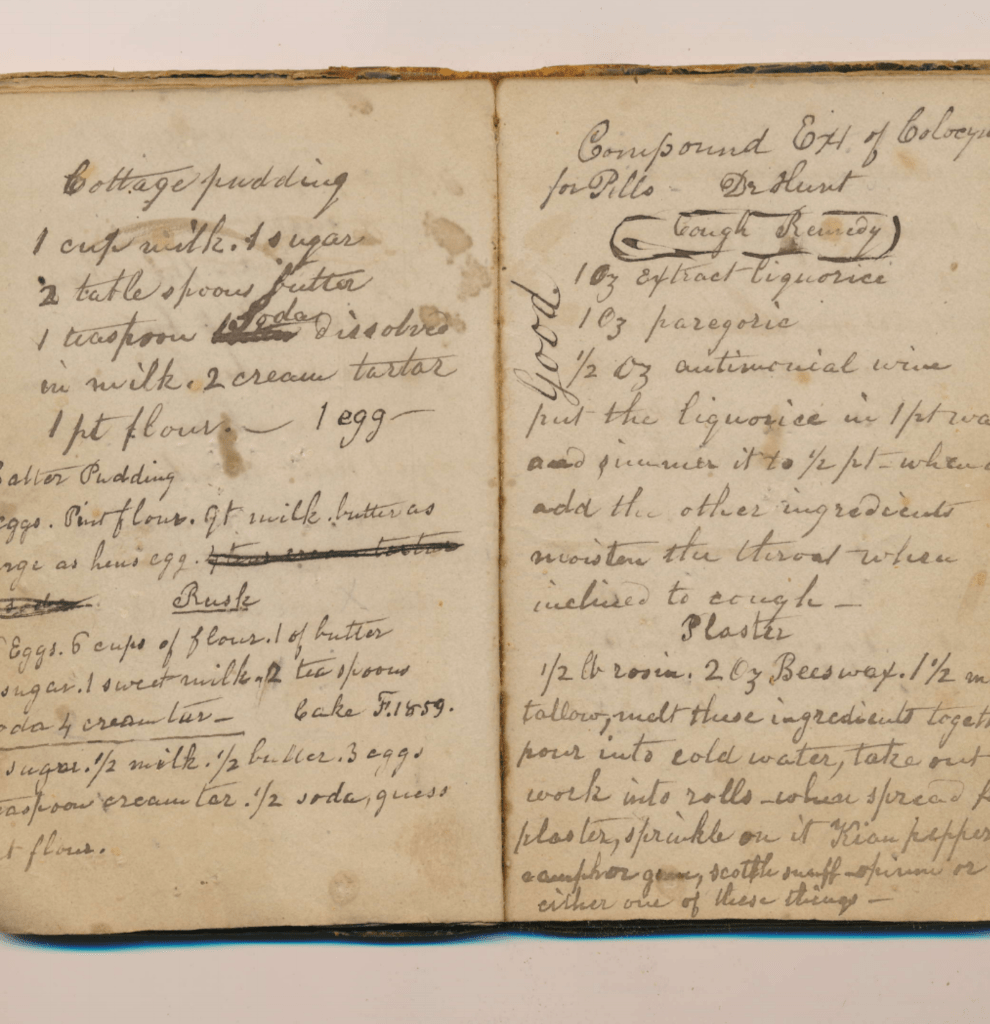 Cottage pudding
1 cup milk. 1 sugar
2 table spoons butter
1 teaspoon Soda dissolved
in milk. 2 cream tartar
1 pt flour. — 1 egg —
Batter Pudding
eggs. Pint flour. qt milk. butter as
arge as hens egg.
Rusk
Eggs. 6 cups of flour. 1 of butter
sugar. 1 sweet milk. 2 tea spoons
oda 4 cream tar —
Cake F. 1859.
sugar. 1/2 milk. 1/2 butter. 3 eggs
teaspoon cream tar. 1/2 soda, guess
t flour.
Compound Ext of Colocyn
for Pills — Dr Hunt
Cough Remedy
Good
1 Oz extract liquorice
1 Oz paregoric
1/2 Oz antimonial wine
put the liquorice in 1 pt wa
and simmer it to 1/2 pt — when
add the other ingredients
moisten the throat when
inclined to cough —
Plaster
1/2 lb rosin. 2 Oz Beeswax. 1 1/2 m
tallow, melt these ingredients togeth
pour into cold water, take out
work into rolls — when spread f
plaster, sprinkle on it Kian pepper
camphor gum, scotch snuff — opium or
either one of these things —